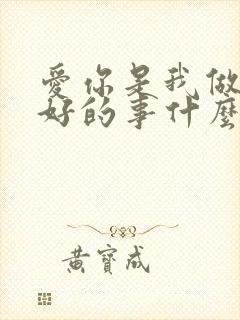 愛你是我做
好的事什麼
黃寶成